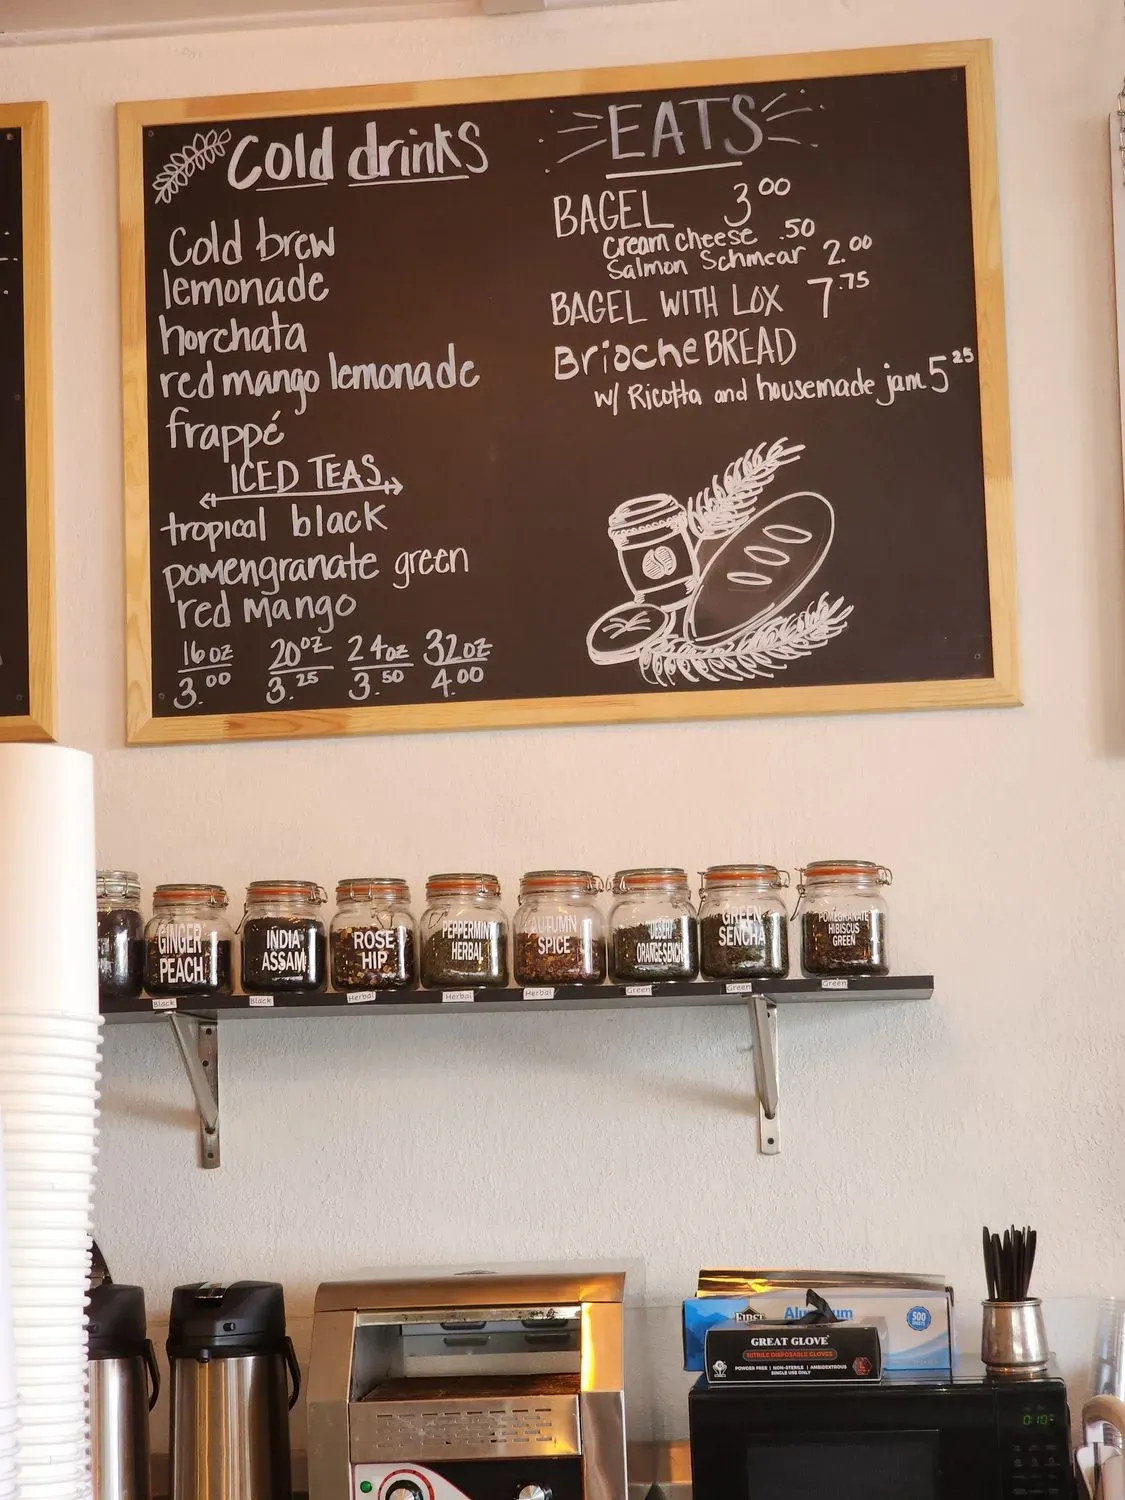 Cold drinks
Cold brew
lemonade
horchata
red mango lemonade
frappé
ICED TEAS
tropical black
pomengranate green
red mango
16oz 20oz 24oz 32oz
3.00 3.25 3.50 4.00
EATS
BAGEL 3 00
cream cheese .50
Salmon Schmear 2.00
BAGEL WITH LOX 7.75
Brioche BREAD
w/ Ricotta and housemade jam 5 25
GINGER
PEACH
Black
INDIA
ASSAM
Black
ROSE
HIP
Herbal
PEPPERMINT
HERBAL
Herbal
AUTUMN
SPICE
Herbal
DESERT
ORANGE SENCHA
Green
GREEN
SENCHA
Green
POMEGRANATE
HIBISCUS
GREEN
Green
FIRST
Aluminum
500
GREAT GLOVE
NITRILE DISPOSABLE GLOVES
POWDER FREE | NON-STERILE | AMBIDEXTROUS
SINGLE USE ONLY
L
0:10